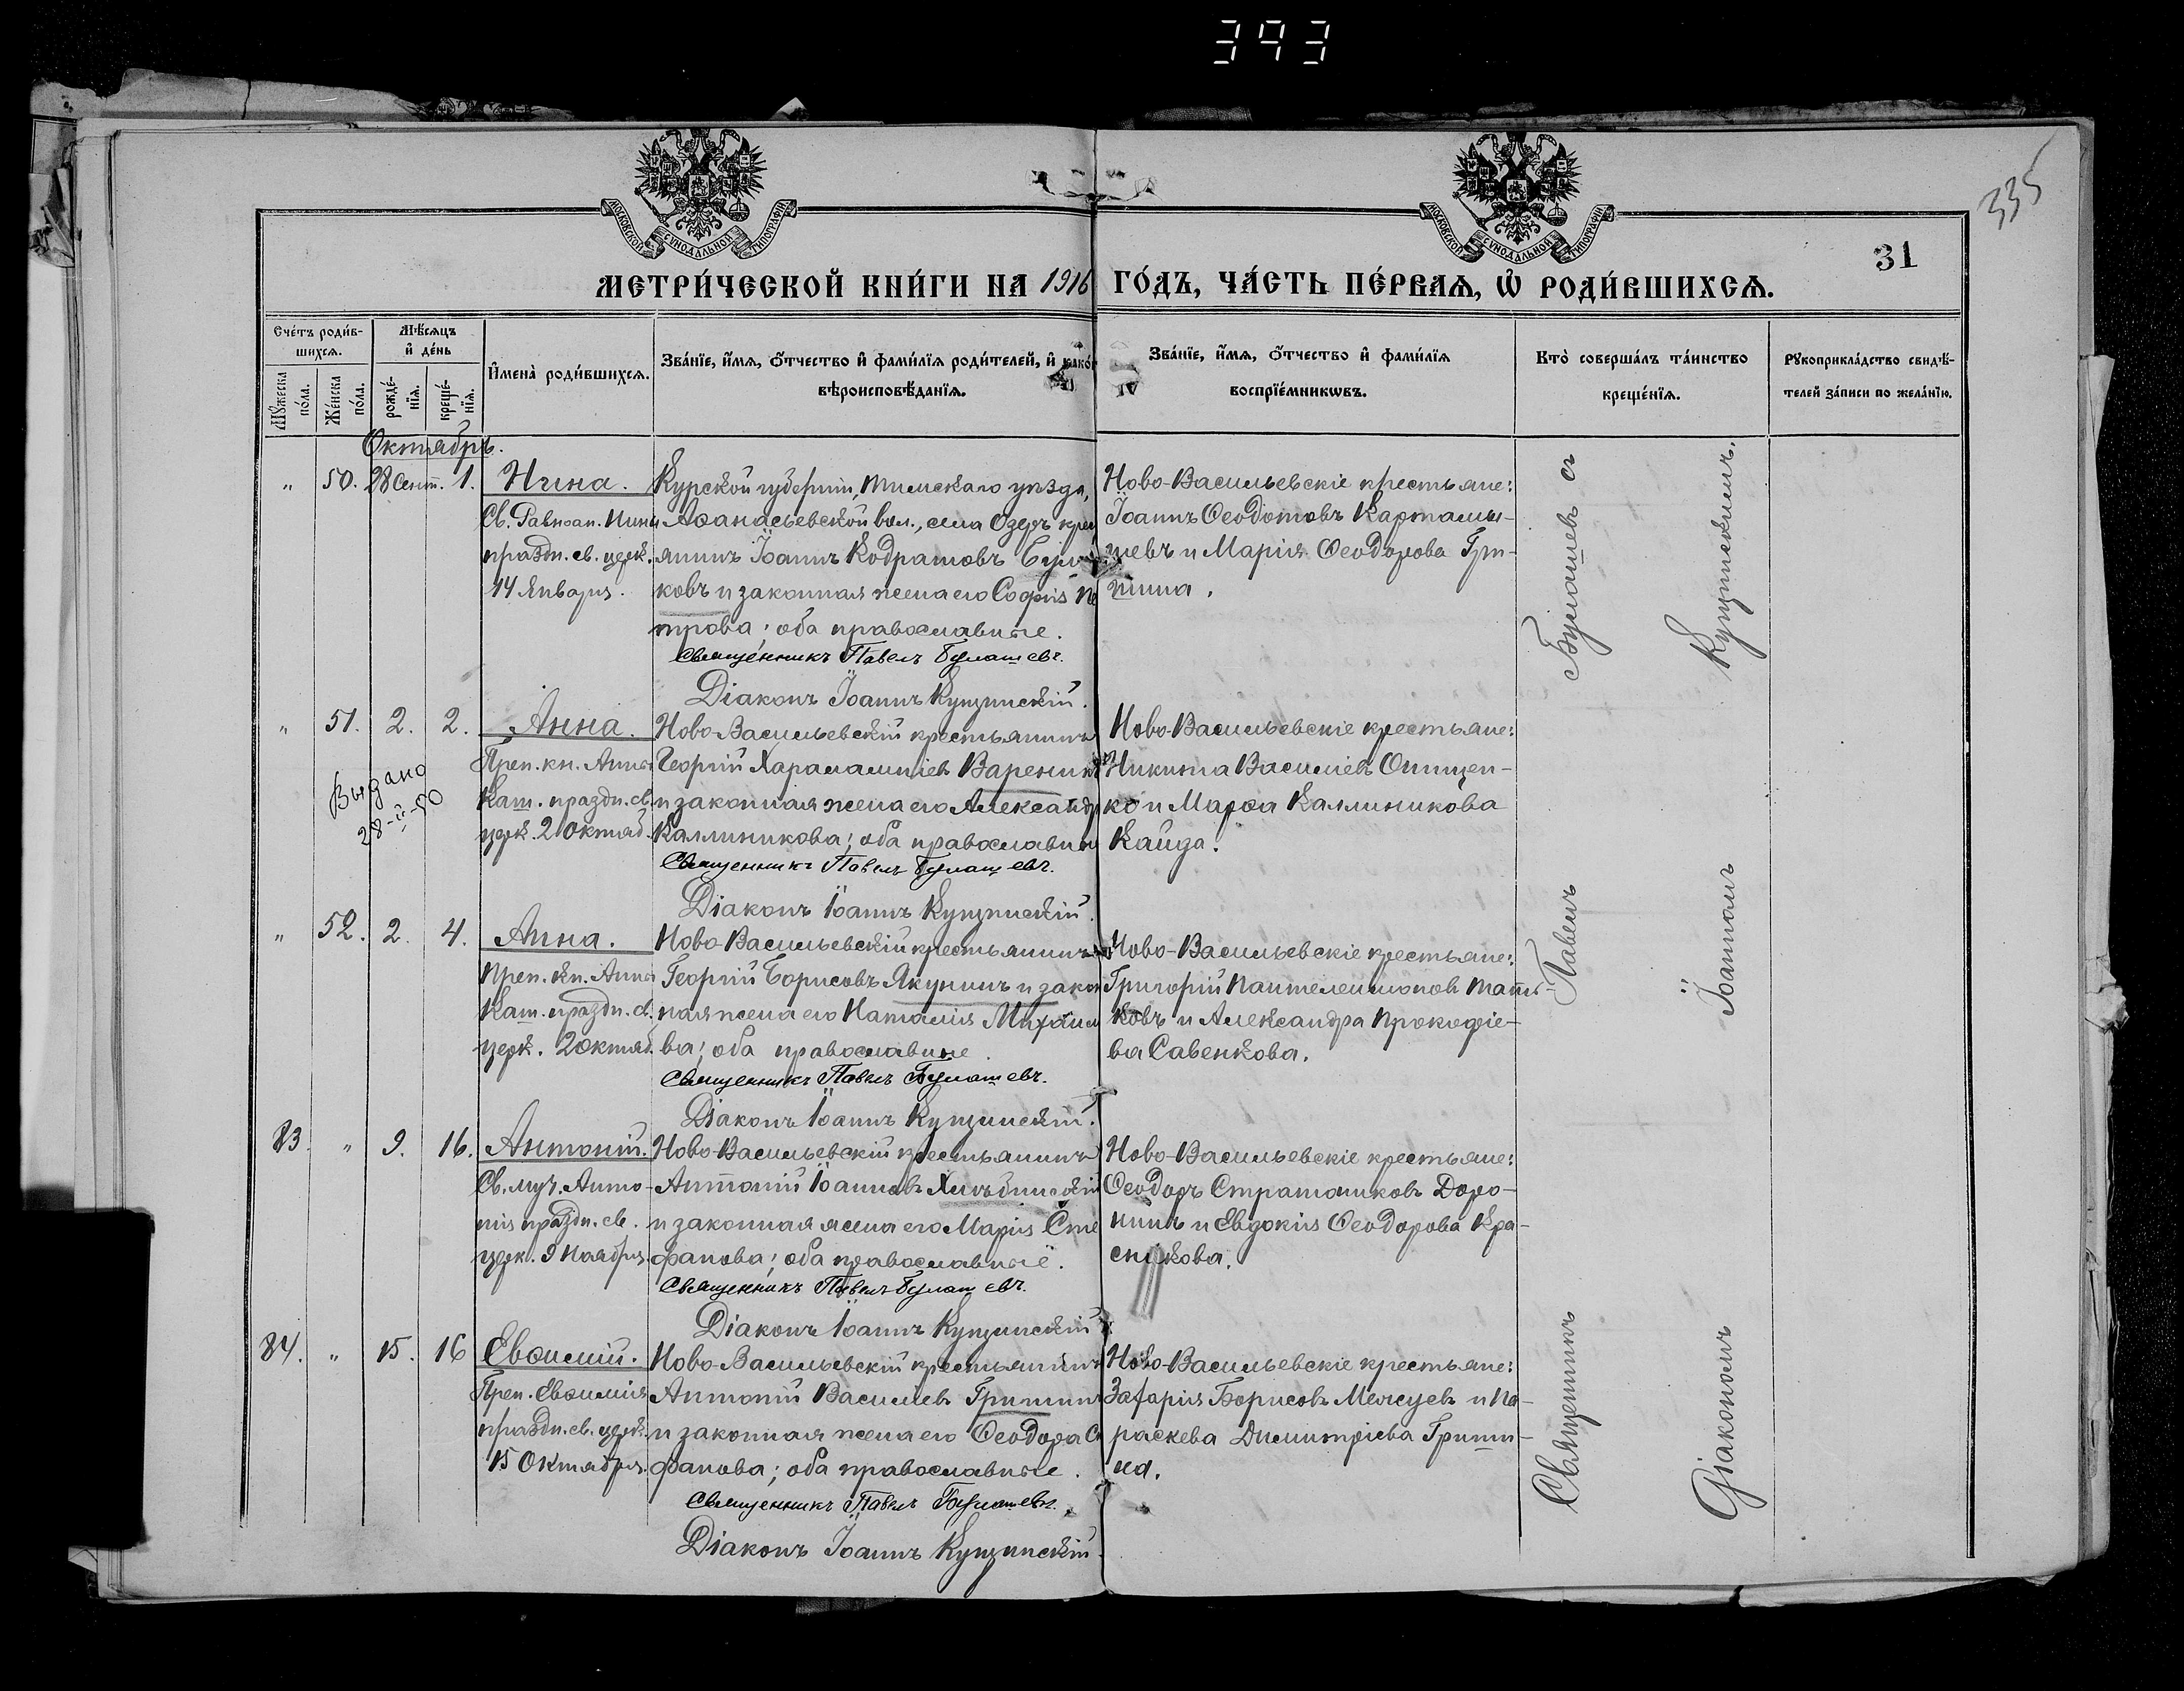 393
335
31
МОСКОВСКОЙ СѴНОДАЛЬНОЙ ТИПОГРАФІИ
МОСКОВСКОЙ СѴНОДАЛЬНОЙ ТИПОГРАФІИ
МЕТРИ́ЧЕСКОЙ КНИ́ГИ НА 1916 ГО́ДЪ, ЧА́СТЬ ПЕ́РВАѦ, Ѡ РОДИ́ВШИХСѦ.
Сче́тъ роди́в-
шихсѧ.
Мꙋ́жеска по́ла.
Же́нска по́ла.
Мѣ́сѧцъ
и де́нь
рожде́-
нїѧ.
креще́-
нїѧ.
Имена̀ роди́вшихсѧ.
Зва́нїе, и́мѧ, ѻ́тчество и фами́лїѧ роди́телей, и како́
вѣроисповѣ́данїѧ.
Зва́нїе, и́мѧ, ѻ́тчество и фами́лїѧ
воспрїе́мникѡвъ.
Кто̀ соверша́лъ та́инство
креще́нїѧ.
Рꙋкоприкла́дство свидѣ́-
телей за́писи по жела́нїю.
Октябрь.
" 50. 28 Сент. 1. Нина.
Св. Равноап. Нины
праздн. св. церк.
14 Января.
Курской губерніи, Тимскаго уѣзда,
Аѳанасьевской вол., села Озеръ крес
янинъ Іоаннъ Кодратовъ
ковъ и законная жена его Софія Пе
трова; оба православные.
Священникъ Павелъ Булашевъ.
Діаконъ Іоаннъ Купчинскій.
Ново-Васильевскіе крестьяне:
Іоаннъ Ѳеодотовъ Картамы-
шевъ и Марія Ѳеодорова Гри-
шина.
" 51. 2. 2. Анна.
Преп. кн. Анны
Каш. праздн. св.
церк. 2 Октяб.
Выдано
28-II-50
Ново-Васильевскій крестьянинъ
Георгій Харалампіевъ Вареник
и законная жена его Александр
Каллиникова; оба православны
Священникъ Павелъ Булашевъ.
Діаконъ Іоаннъ Купчинскій.
Ново-Васильевскіе крестьяне:
Никита Василіевъ Онищен-
ко и Марѳа Каллиникова
Кайда.
" 52. 2. 4. Анна.
Преп. кн. Анны
Каш. праздн. св.
церк. 2 Октяб.
Ново-Васильевскій крестьянинъ
Георгій Борисовъ Якунинъ и закон
ная жена его Наталія Михаило
ва; оба православные.
Священникъ Павелъ Булашевъ.
Діаконъ Іоаннъ Купчинскій.
Ново-Васильевскіе крестьяне:
Григорій Пантелеимоновъ
ковъ и Александра Прокофіе-
ва Савенкова.
83. " 9. 16. Антоній.
Св. муч. Анто-
нія праздн. св.
церк. 9 Ноября.
Ново-Васильевскій крестьянинъ
Антоній Іоанновъ
и законная жена его Марія Сте
фанова; оба православные.
Священникъ Павелъ Булашевъ.
Діаконъ Іоаннъ Купчинскій.
Ново-Васильевскіе крестьяне:
Ѳеодоръ Стратониковъ Доро-
нинъ и Евдокія Ѳеодорова Кра-
снікова.
84. " 15. 16 Евѳимій.
Преп. Евѳимія
праздн. св. церк.
15 Октября.
Ново-Васильевскій крестьянинъ
Антоній Василіевъ Гришин
и законная жена его Ѳеодора С
фанова; оба православные.
Священникъ Павелъ Булашевъ.
Діаконъ Іоаннъ Купчинскій.
Ново-Васильевскіе крестьяне:
Захарія Борисовъ Межуевъ и Па-
раскева Димитріева Гриши-
на.
Священникъ Павелъ Булашевъ съ
Діакономъ Іоанномъ Купчинскимъ.